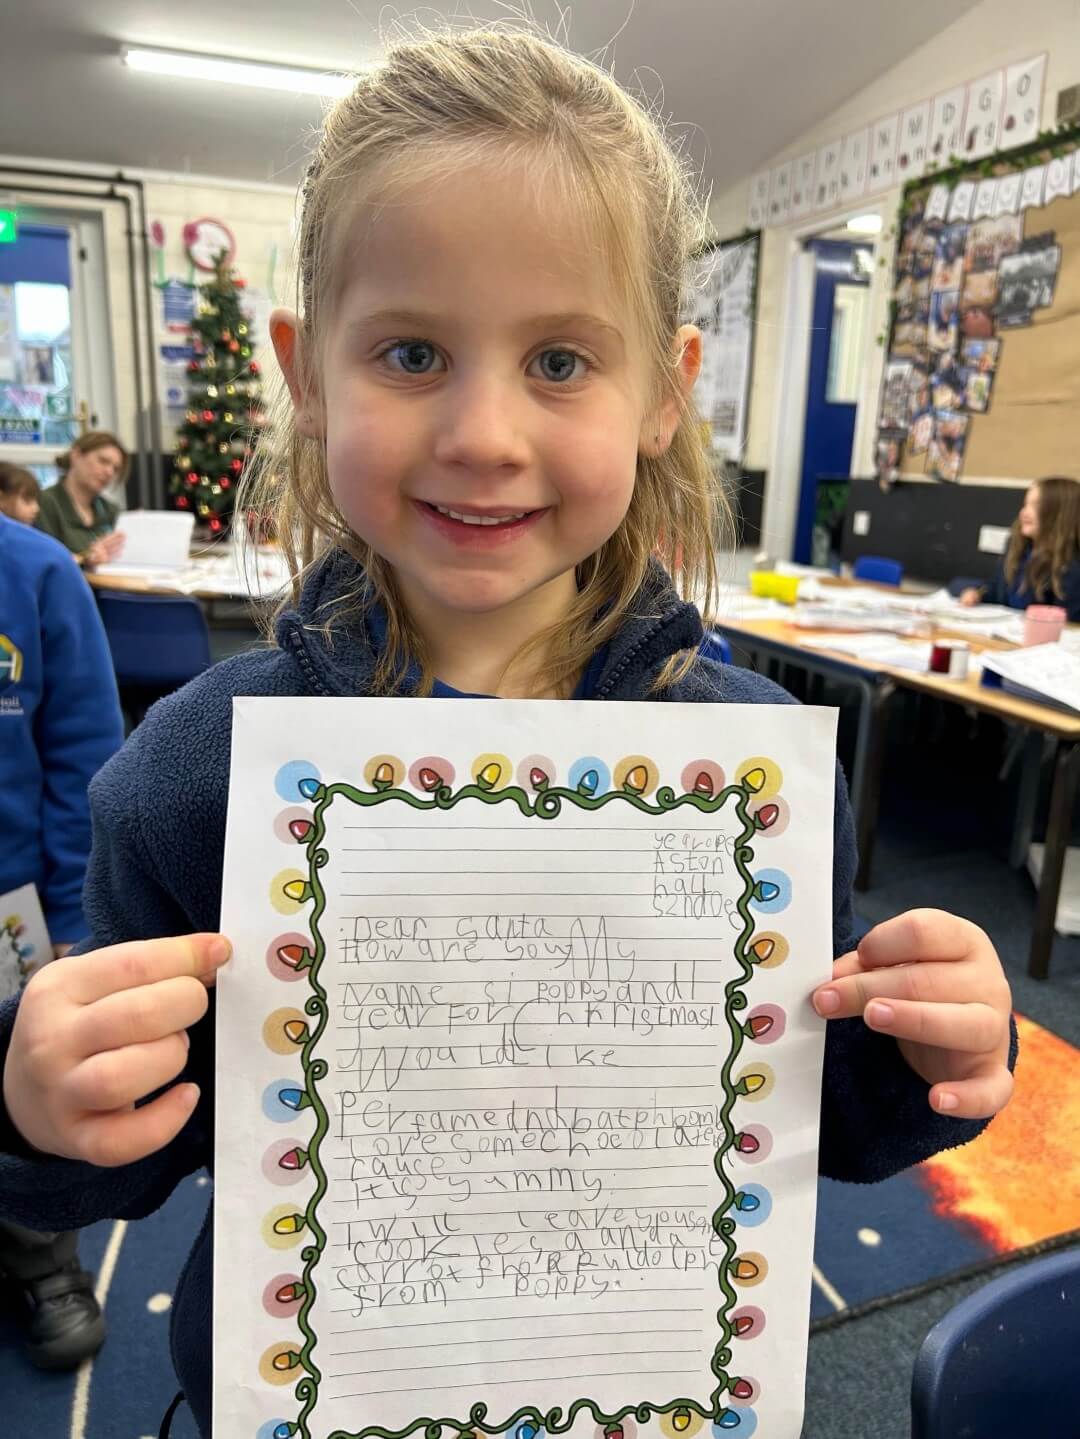 Aston
hall
Dear Santa
How are you My
Name si poppy and I
year For Chhristmas I
Would Like
Perfame and batphbom
I ove some chocolate
cause
It is yummy.
I will leave you some
cookies and a
carrot fhor Ruldolph
from poppy.
N M D G O